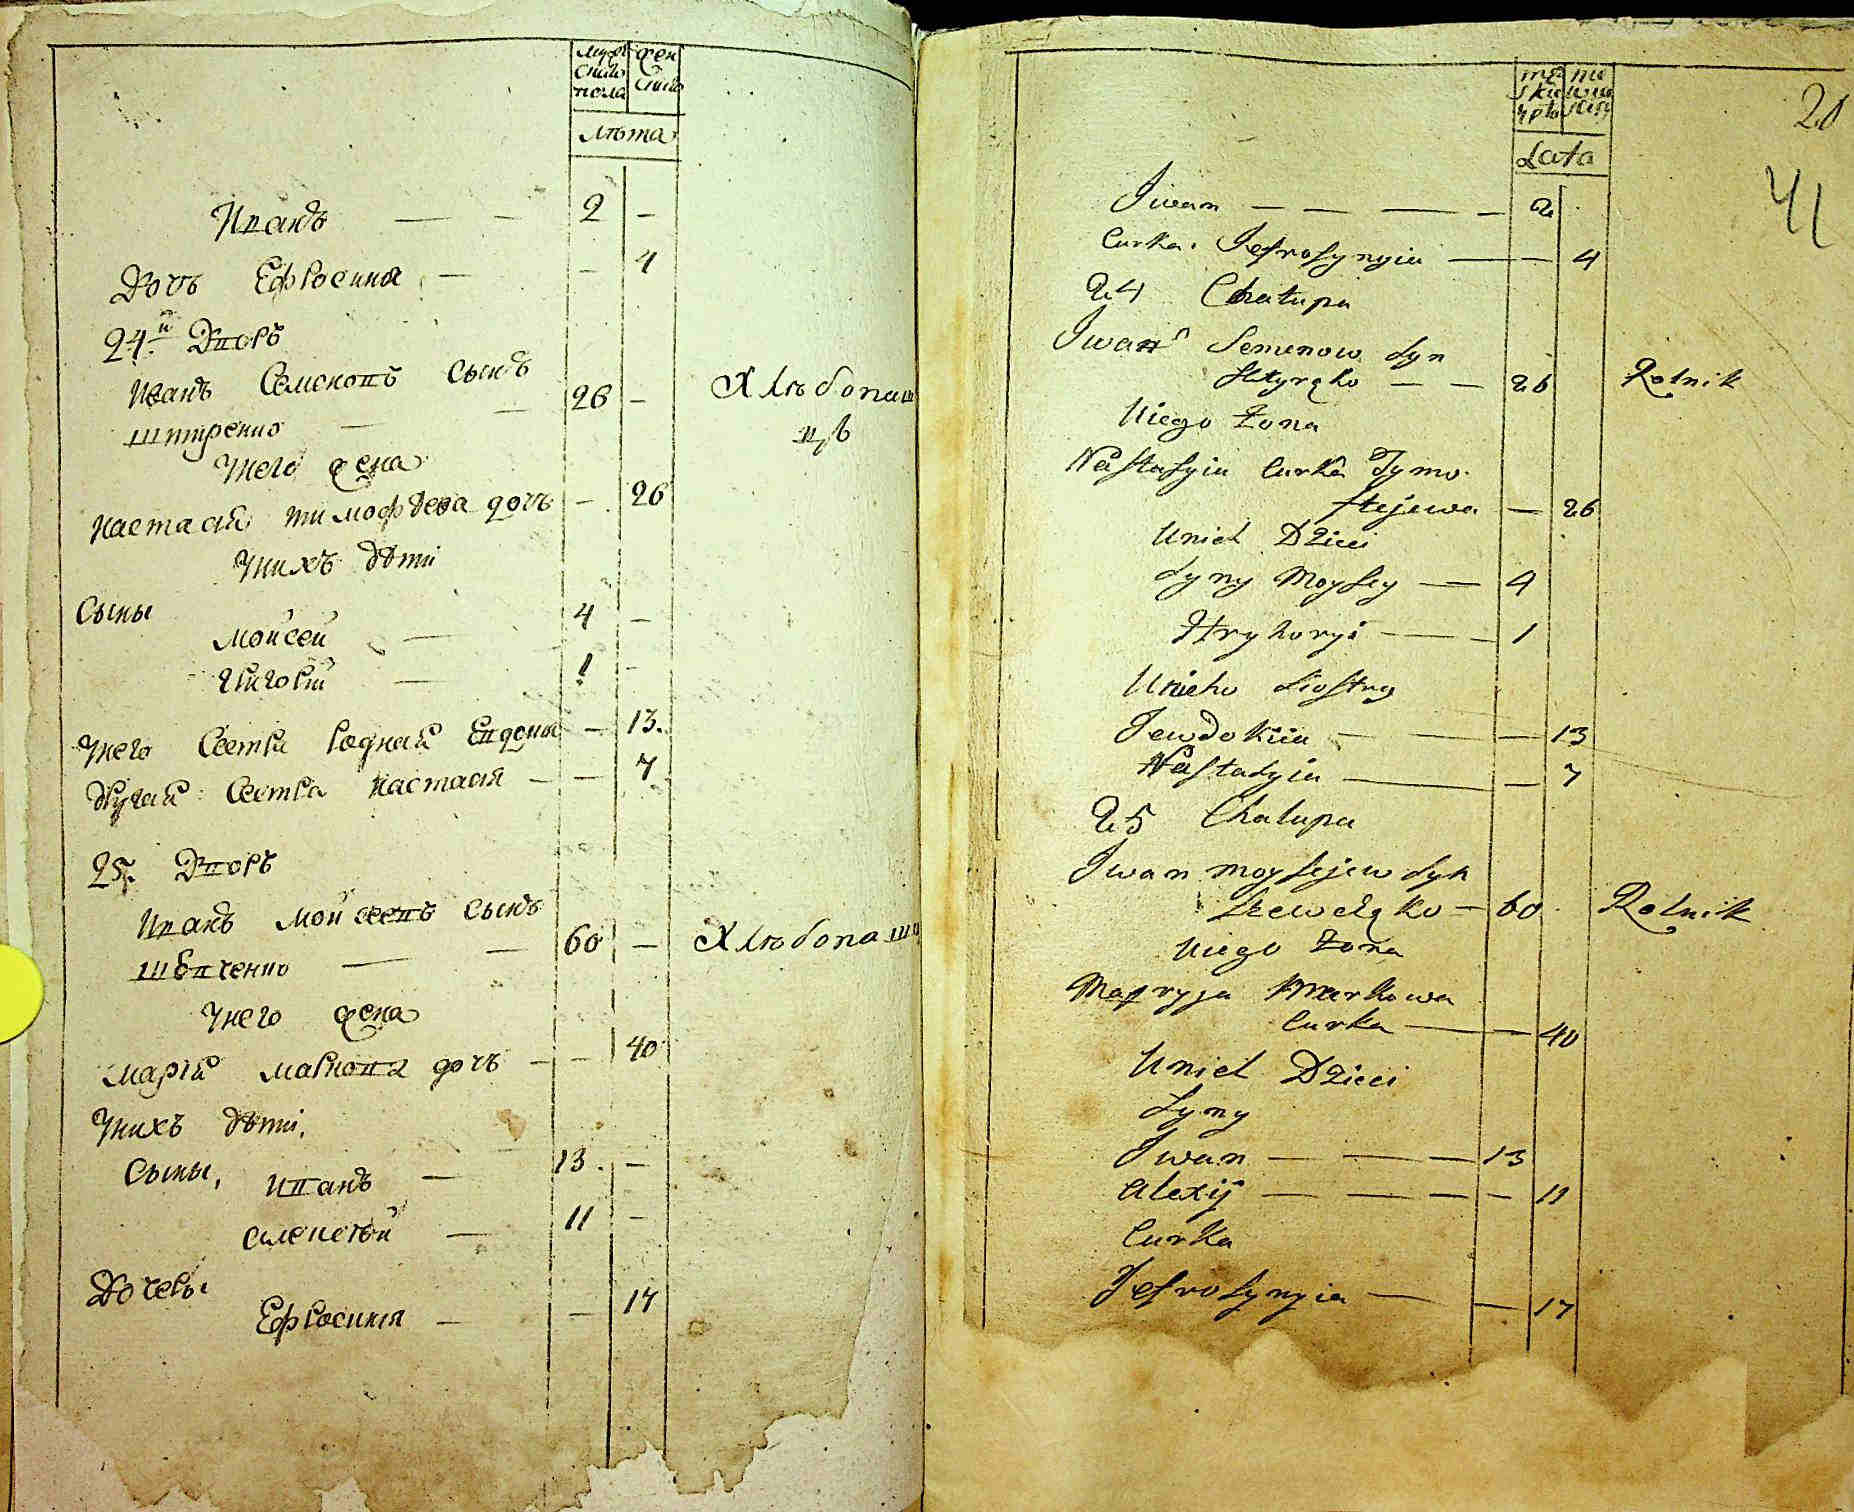 мужеска пола
женска
лѣта
Иванъ — — 2 —
Дочъ Ефросиния — — 4
24й Дворъ
Иванъ Семеновъ сынъ
Штиренко — — 26 — Хлѣбопашцъ
У него жена
Настасий Тимофѣева дочъ — 26
У нихъ дѣти
Сыны
Мойсей — 4 —
Григорий — 1 —
У него сестра родная Евдокия — 13.
Другая сестра Настасия — — 7
25. Дворъ
Иванъ Мойсеевъ сынъ
Шевченко — — 60 — Хлѣбопашц
У него жена
Марій Маркова дочъ — — 40
У нихъ дѣти.
Сыны, Иванъ — 13. —
Алексѣй — 11 —
Дочеры
Ефросиния — — 17
20
41
Lata
Iwan — — — — 2
Curka. Jefrosynyia — — 4
24 Chałupa
Iwan Semenow Syn
— — 26 Rolnik
Uniego Żona
Nastasyia Curka Tymo-
ftejewa — 26
Unich Dzieci
Syny Moysey — 4
Hryhoryi — — 1
Unieho Siostry
Jewdokiia — — — 13
Nastasyia — — 7
25 Chalupa
Iwan Moysejew Syn
— 60 Rolnik
Uniego Żona
Maryja Markowa
Curka — — 40
Unich Dzieci
Syny
Iwan — — — 13
Alexij — — — — 11
Curka
Jefrosynyia — — 17